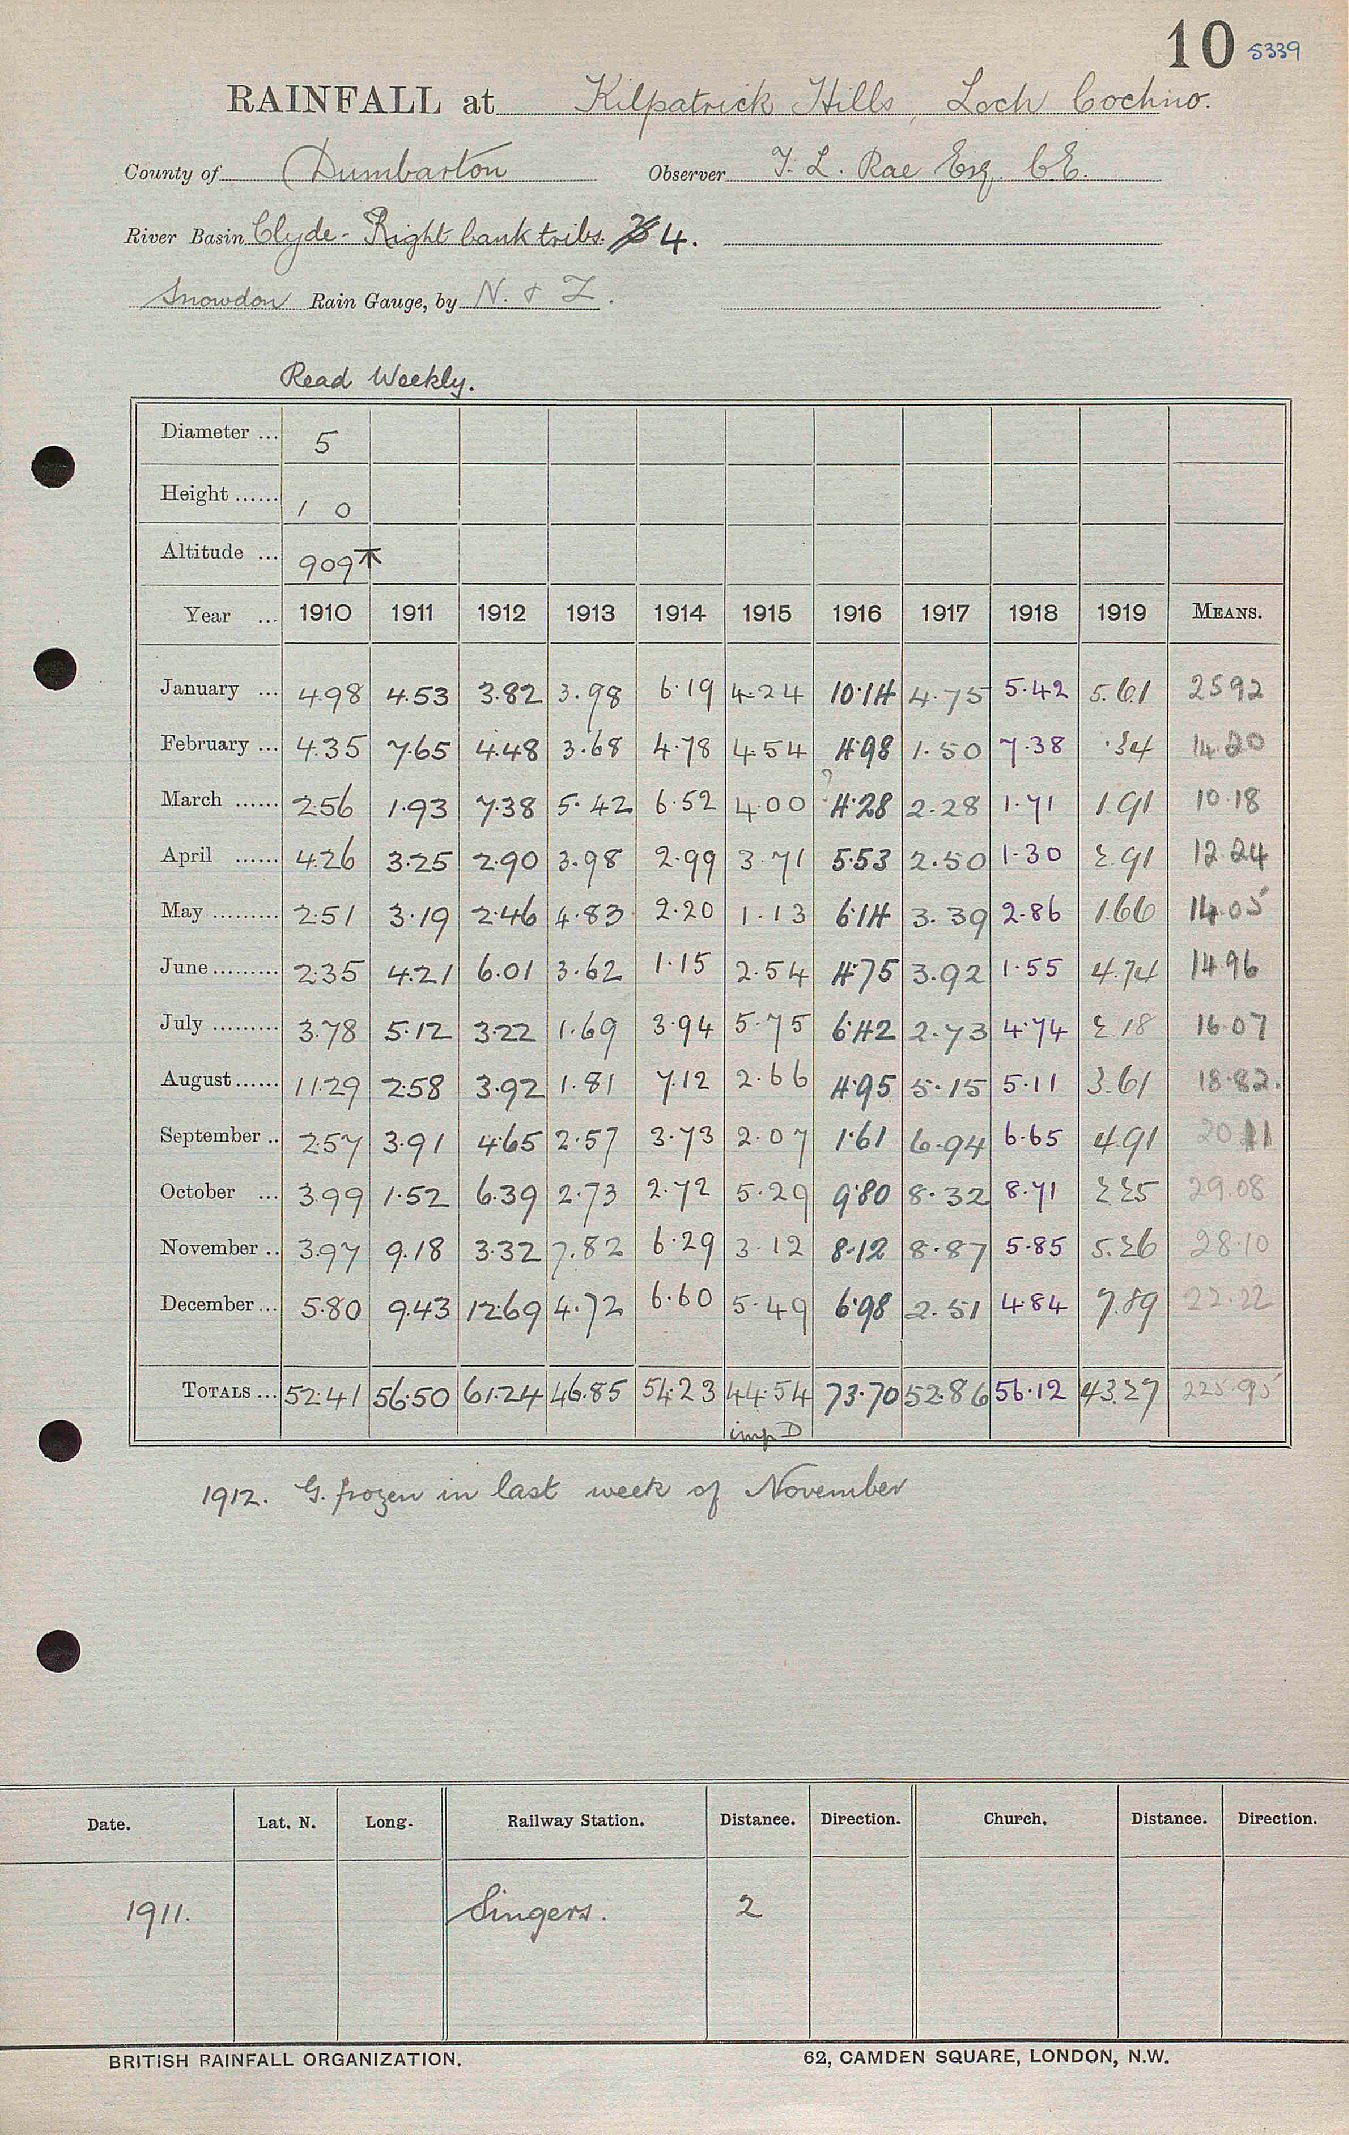 10 5339
RAINFALL at Kilpatrick Hills, Loch Cochno.
County of Dumbarton Observer F. L. Rae Esq. C.E.
River Basin Clyde - Right bank tribs. 4.
Snowdon Rain Gauge, by N. & Z.
Read Weekly.
Diameter ... 5
Height ...... 1 0
Altitude ... 909
Year ... 1910 1911 1912 1913 1914 1915 1916 1917 1918 1919 MEANS.
January ... 4.98 4.53 3.82 3.98 6.19 4.24 10.14 4.75 5.42 5.61 25 92
February ... 4.35 7.65 4.48 3.68 4.78 4.54 4.98 1.50 7.38 .34 14.20
March ...... 2.56 1.93 7.38 5.42 6.52 4.00 ? 4.28 2.28 1.71 1.91 10.18
April ...... 4.26 3.25 2.90 3.98 2.99 3.71 5.53 2.50 1.30 2.91 12.24
May ......... 2.51 3.19 2.46 4.83 2.20 1.13 6.14 3.39 2.86 1.66 14.05
June ......... 2.35 4.21 6.01 3.62 1.15 2.54 4.75 3.92 1.55 4.74 14.96
July ......... 3.78 5.12 3.22 1.69 3.94 5.75 6.42 2.73 4.74 2.18 16.07
August ...... 11.29 2.58 3.92 1.81 7.12 2.66 4.95 5.15 5.11 3.61 18.82.
September .. 2.57 3.91 4.65 2.57 3.73 2.07 1.61 6.94 6.65 4.91 20.11
October ... 3.99 1.52 6.39 2.73 2.72 5.29 9.80 8.32 8.71 2.25 29.08
November .. 3.97 9.18 3.32 7.82 6.29 3.12 8.12 8.87 5.85 5.26 28.10
December ... 5.80 9.43 12.69 4.72 6.60 5.49 6.98 2.51 4.84 7.89 22.22
TOTALS ... 52.41 56.50 61.24 46.85 54.23 44.54 73.70 52.86 56.12 43.27 225.95
imp D
1912. G. frozen in last week of November
Date. Lat. N. Long. Railway Station. Distance. Direction. Church. Distance. Direction.
1911. Singers. 2
BRITISH RAINFALL ORGANIZATION. 62, CAMDEN SQUARE, LONDON, N.W.